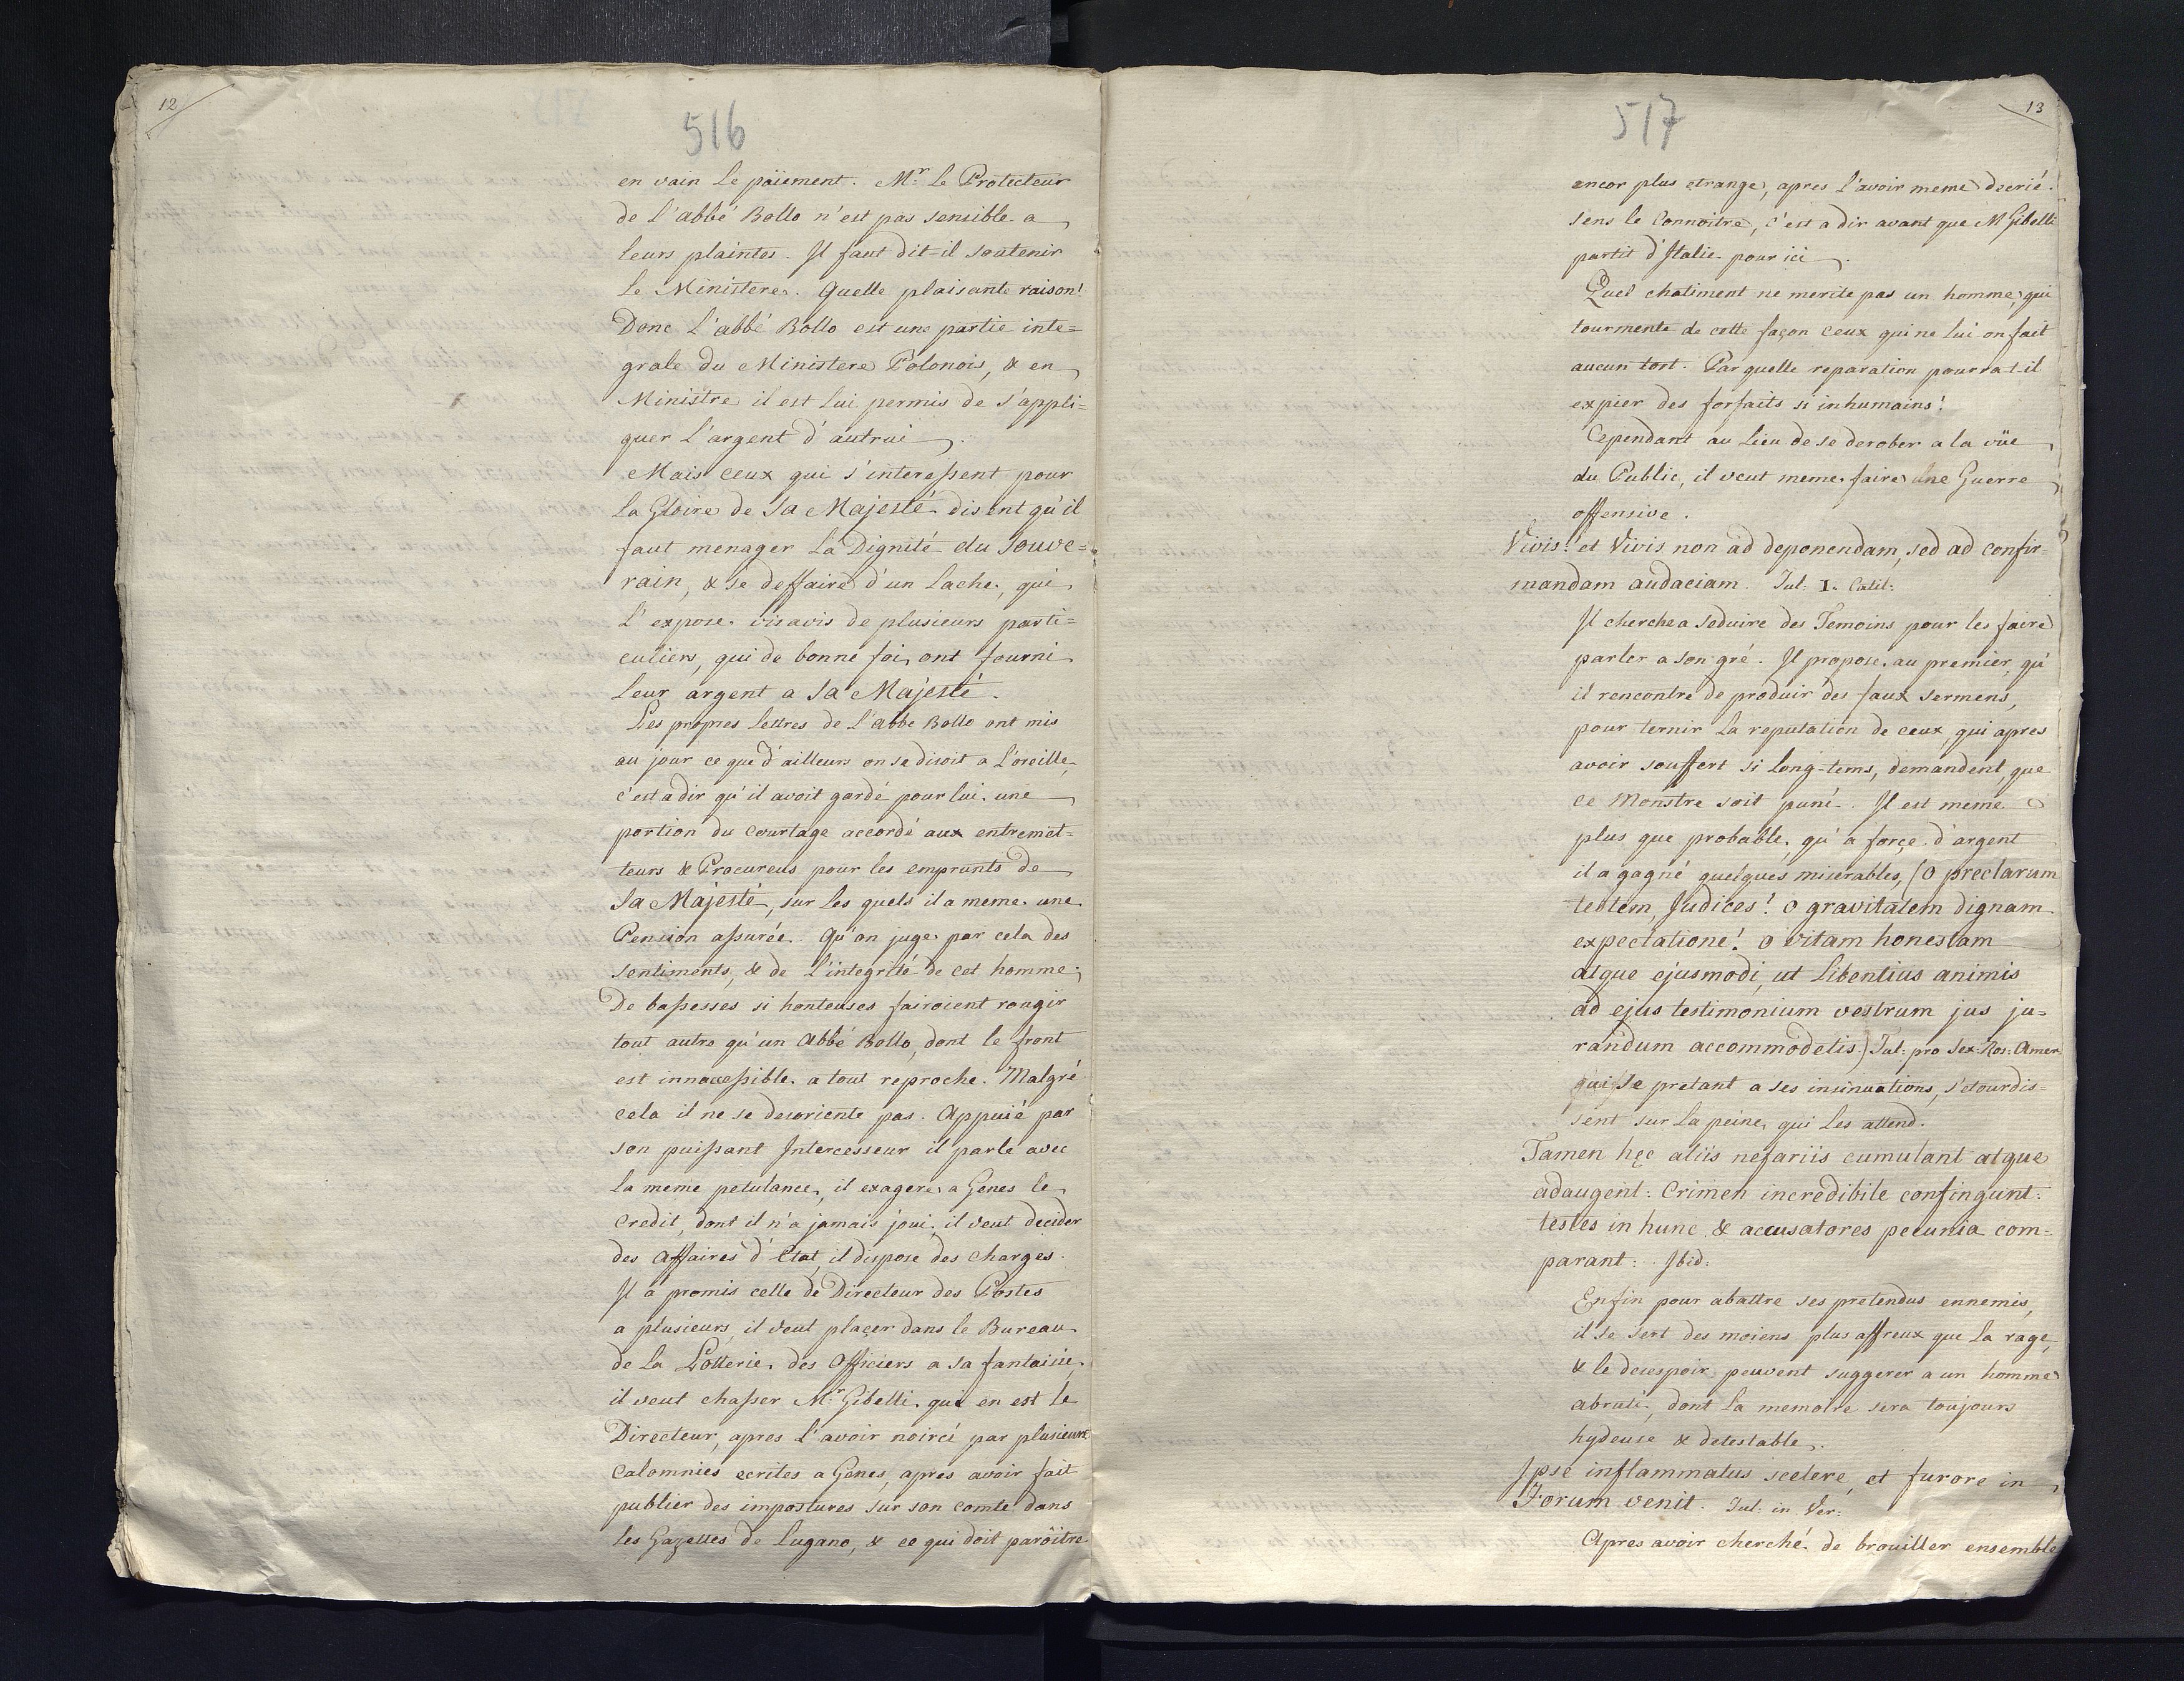 12
516
en vain le païement. Mr. le Protecteur
de l'abbé Bollo n'est pas sensible a
leurs plaintes. Il faut dit-il soutenir
le Ministere. Quelle plaisante raison!
Donc l'abbé Bollo est une partie inte=
grale du Ministere Polonois, & en
Ministre il est lui permis de s'appli=
quer l'argent d'autrui.
Mais ceux qui s'interessent pour
la Gloire de Sa Majesté disent qu'il
faut menager la Dignité du Souve=
rain, & se deffaire d'un lache, qui
l'expose visavis de plusieurs parti=
culiers, qui de bonne foi ont fourni
leur argent a Sa Majesté.
Les propres lettres de l'abbe Bollo ont mis
au jour ce que d'ailleurs on se disoit a l'oreille,
c'est a dir qu'il avoit gardé pour lui une
portion du Courtage accordé aux entremet=
teurs & Procureus pour les emprunts de
Sa Majesté, sur les quels il a meme une
Pension assurée. Qu'on juge par cela des
sentiments, & de l'integrité de cet homme;
De bassesses si honteuses fairoient rougir
tout autre qu'un Abbé Bollo, dont le front
est innaccessible a tout reproche. Malgré
cela il ne se desoriente pas. Appuié par
son puissant Intercesseur il parle avec
la meme petulance, il exagere a Genes le
Credit, dont il n'a jamais joui, il veut decider
des Affaires d'Etat, il dispose des charges.
Il a promis celle de Directeur des Postes
a plusieurs, il veut plaçer dans le Bureau
de la Lotterie des Officiers a sa fantaisie,
il veut chasser Mr. Gibelli qui en est le
Directeur, apres l'avoir noirci par plusieurs
Calomnies ecrites a Genes, apres avoir fait
publier des impostures sur son comte dans
les Gazettes de Lugano, & ce qui doit paroitre
13
517
encor plus etrange, apres l'avoir meme decrié
sens le Connoitre, c'est a dir avant que M Gibelli
partit d'Italie pour ici.
Quel chatiment ne merite pas un homme, qui
tourmente de cette façon ceux qui ne lui on fait
aucun tort. Par quelle reparation pourrat-il
expier des forfaits si inhumains!
Cependant au lieu de se derober a la vüe
du Public, il veut meme faire une Guerre
offensive.
Vivis! et Vivis non ad deponendam, sed ad confir=
mandam audaciam. Tul: I. Catil:
Il cherche a seduire des Temoins pour les faire
parler a son gré. Il propose au premier, qu'
il rencontre de produir des faux sermens,
pour ternir la reputation de ceux, qui apres
avoir souffert si long-tems, demandent, que
ce Monstre soit puni. Il est meme
plus que probable, qu'a forçe d'argent
il a gagné quelques miserables, (O preclarum
testem, Judices! o gravitatem dignam
expectatione! o vitam honestam
atque ejusmodi, ut libentius animis
ad ejus testimonium vestrum jus ju=
randum accommodetis) Tul: pro Sex: Ros: Amer.
qui se pretant a ses insinuations, s'etourdis=
sent sur la peine, qui les attend.
Tamen hęc aliis nefariis cumulant atque
adaugent: Crimen incredibile confingunt:
testes in hunc & accusatores pecunia com=
parant: Ibid:
Enfin pour abattre ses pretendus ennemis,
il se sert des moiens plus affreux que la rage,
& le desespoir peuvent suggerer a un homme
abruti, dont la memoire sera toujours
hydeuse & detestable.
Ipse inflammatus scelere, et furore in
Forum venit. Tul: in Ver:
Apres avoir cherché de brouiller ensemble